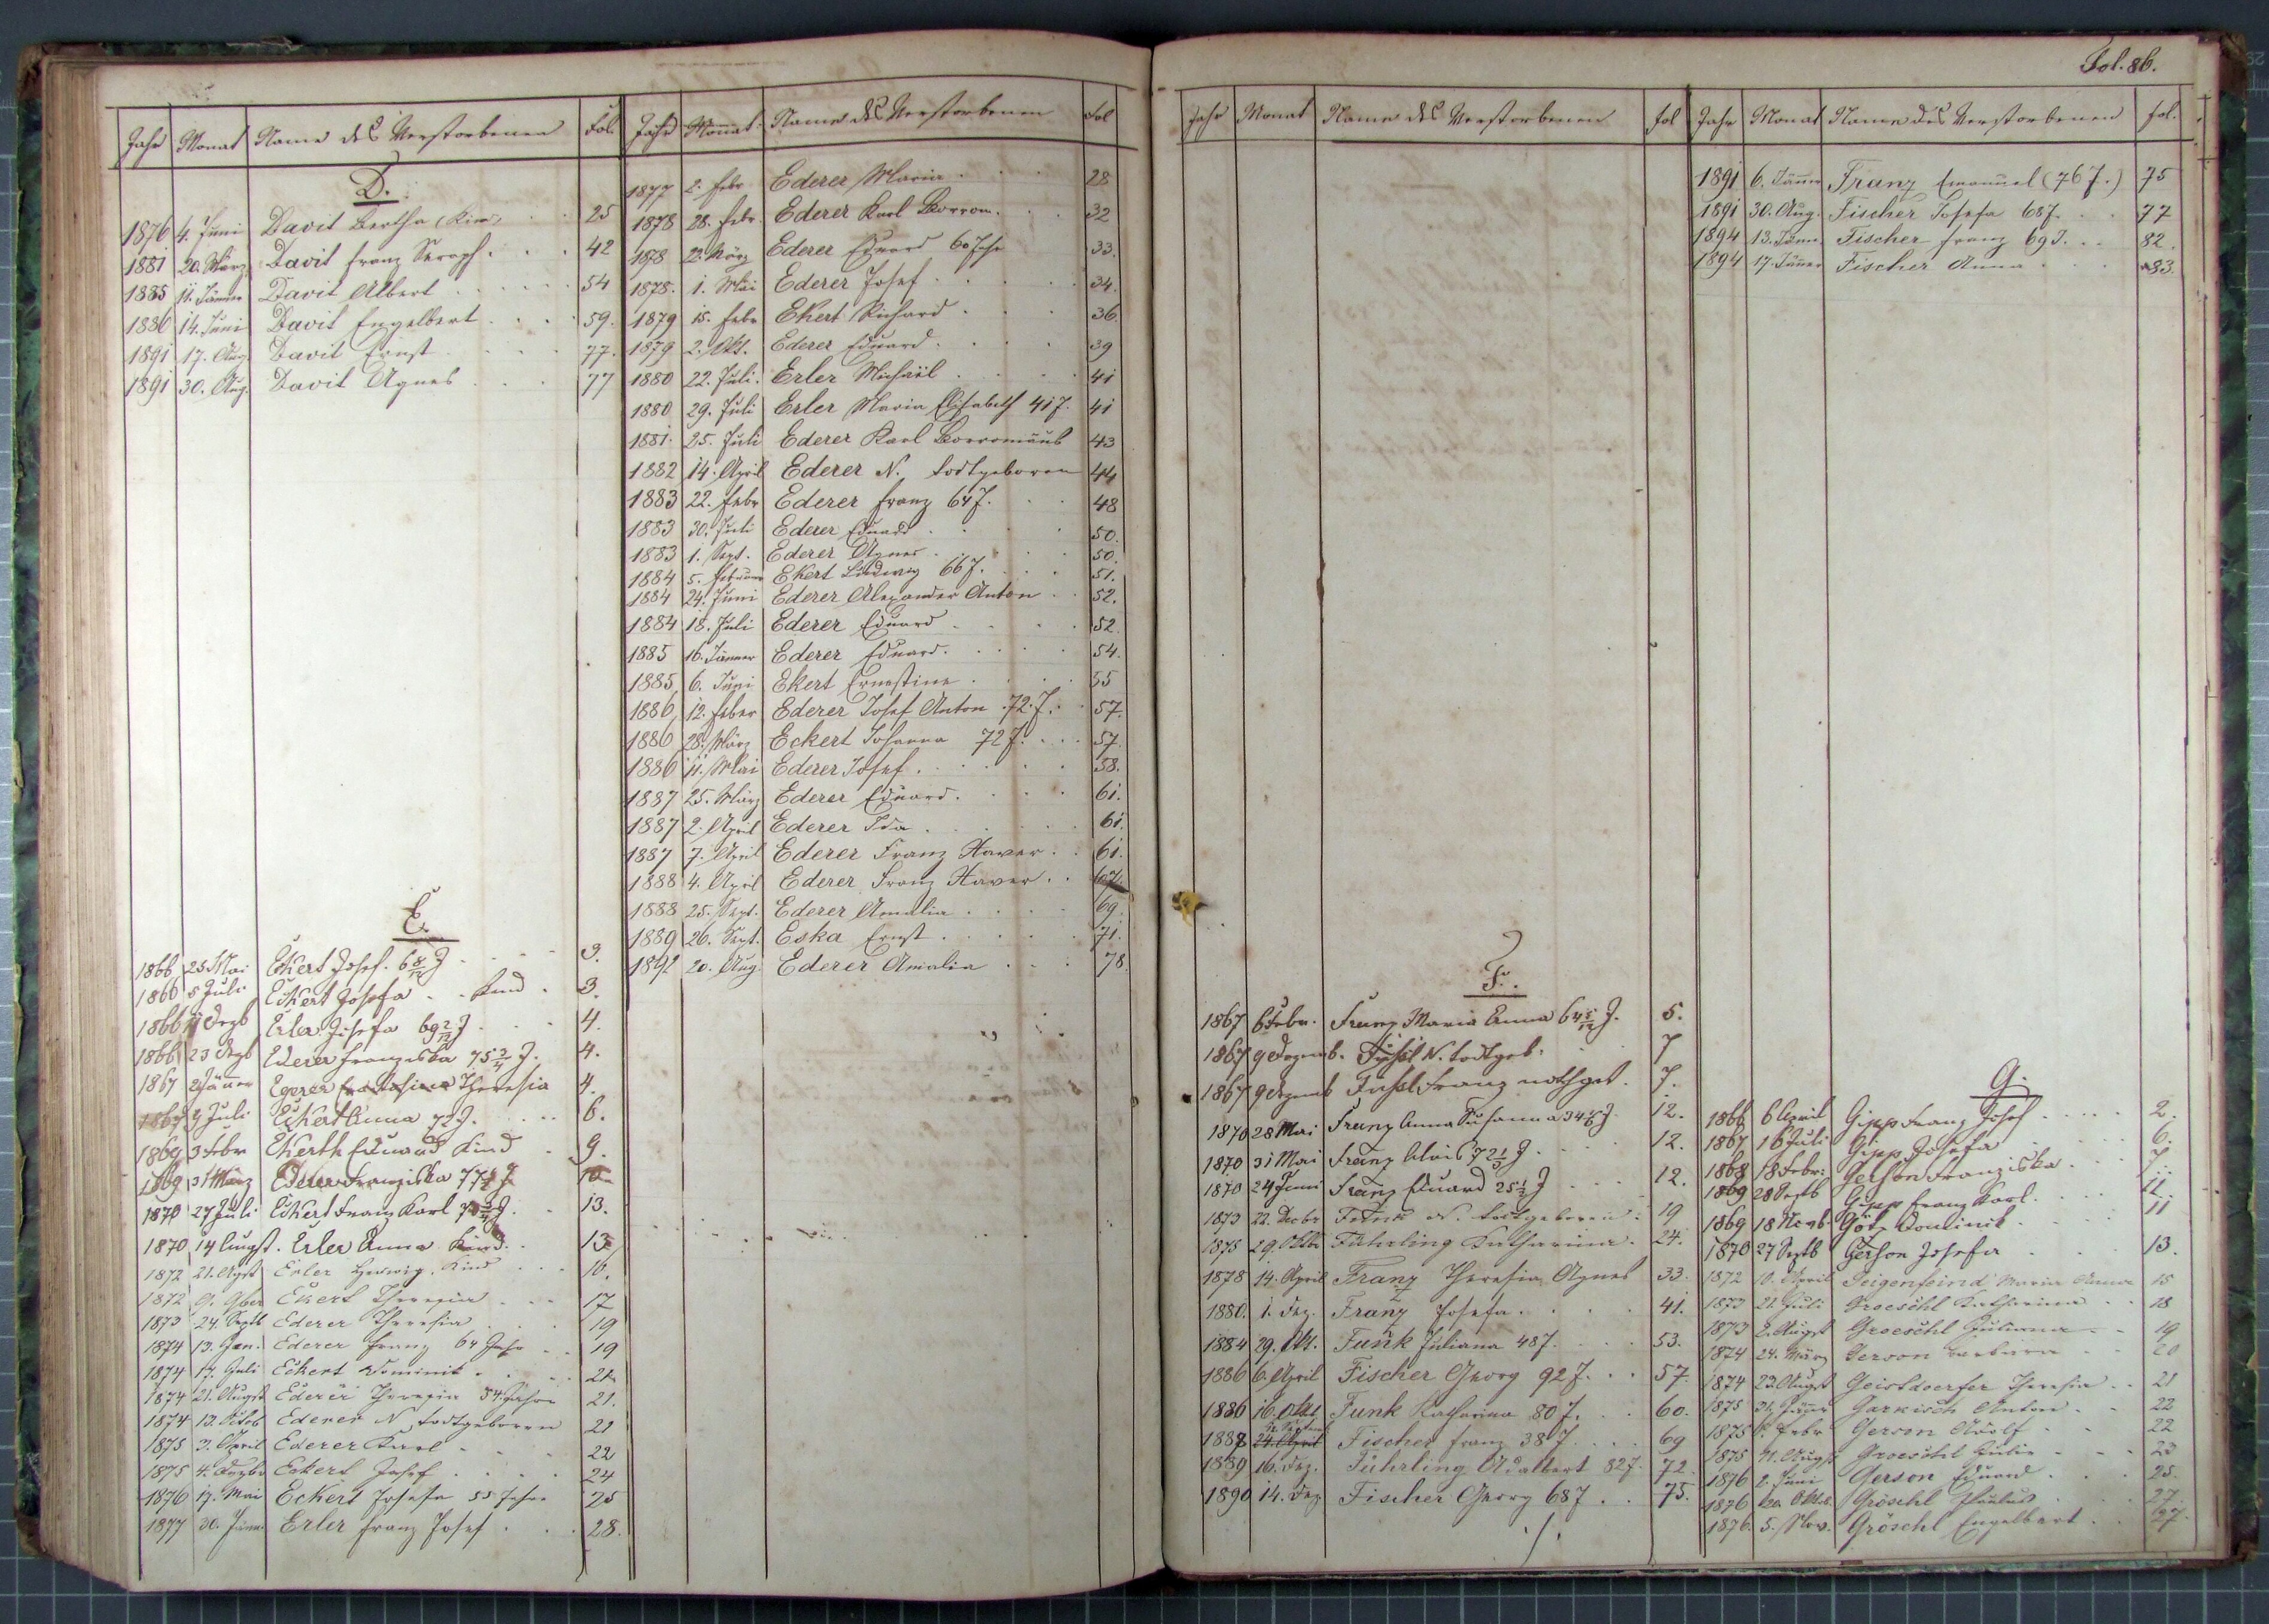 Jahr Monat Name des Verstorbenen Fol.
D.
1876 4. Juni Davit Bertha (Kind) 25
1881 20. März Davit Franz Seraph. 42
1885 11. Jänner Davit Albert 54
1886 14. Juni Davit Engelbert 59.
1891 17. Aug. Davit Ernst 77.
1891 30. Aug. Davit Agnes 77
E.
1866 25 Mai Eckert Josef. 3.
1866 5 Juli Eckert Josefa Kind 3.
1866 Dezb Erler Josefa 69 2/12 J 4.
1866 23 Dezb Ederer Franziska 75 3/4 J. 4.
1867 2 Jänner Theresia 4.
1867 9 Juli Eckert Anna 72 J. 6.
1869 3 Febr Ekerth Eduard Kind 9.
1869 31 März Ederer Franziska 10
1870 27 Juli Eckert Franz Karl 13.
1870 14 Augst. Erler Anna Kind. 13
1872 21. Agst Erler Hedwig. Kind 16.
1872 9. 9ber Ekert Theresia 17
1873 24. Septb Ederer Theresia 19
1874 13. Jan. Ederer Franz 64 Jahr 19
1874 17. Juli Eckert Dominik 21
1874 21. Augst Ederer Theresia 54 Jahre 21.
1874 12. Octob Ederer N todtgeboren 21
1875 3. April Ederer Karl 22
1875 4. Dezbr Eckert Josef 24
1876 17. Mai Eckert Josefa 55 Jahre 25
1877 30. Jänn. Erler Franz Josef 28.
Jahr Monat Name des Verstorbenen Fol
1877 2. Febr Ederer Maria 28
1878 28. Febr. Ederer Karl Borrom. 32
1878 22. März Ederer Eduard 60 Jahr 33.
1878. 1. Mai Ederer Josef 34.
1879 15. Febr Ekert Richard 36.
1879 2. Okt. Ederer Eduard 39
1880 22. Juli. Erler Michael 41
1880 29. Juli Erler Maria Elisabeth 41 J. 41
1881. 25. Juli Ederer Karl Borromäus 43
1882 14. April Ederer N. todtgeboren 44
1883 22. Febr Ederer Franz 64 J. 48
1883 30. Juli Ederer Eduard 50.
1883 1. Sept. Ederer Agnes 50.
1884 5. Februar Ekert Ludwig 66 J. 51.
1884 24. Juni Ederer Alexander Anton 52.
1884 18. Juli Ederer Eduard 52.
1885 16. Jänner Ederer Eduard. 54.
1885 6. Juni Ekert Ernestine 55
1886 12. Feber Ederer Josef Anton 72. J. 57.
1886 28. März Eckert Johanna 72 J. 57.
1886 11. Mai Ederer Josef. 58.
1887 25. März Ederer Eduard. 61.
1887 2. April Ederer Ida 61.
1887 7. April Ederer Franz Xaver. 61.
1888 4. April Ederer Franz Xaver. 67.
1888 25. Sept. Ederer Amalia 69.
1889 26. Sept. Eska Ernst 71.
1892 20. Aug. Ederer Amalia 78.
Jahr Monat Name des Verstorbenen fol
F.
1867 6 Febr. Franz Maria Anna 64 5/12 J. 5.
1867 9 Dezemb. N. todtgeb. 7
1867 9 Dezemb Franz nothget. 7.
1870 28 Mai Franz Anna Susanna 12.
1870 31 Mai Franz Alois 72 1/3 J 12.
1870 24 Juni Franz Eduard 25 1/2 J 12.
1873 22. Decbr N. todtgeboren 19
1875 29. Oktb Führling Katharina 24.
1878 14. April Franz Theresia Agnes 33.
1880. 1. Dez. Franz Josefa 41.
1884 29. Okt. Funk Juliana 48 J. 53.
1886 6. April Fischer Georg 92 J. 57.
1886 16. Okt. Funk Katharina 80 J. 60.
1888 24. April Fischer Franz 38 J. 69
1889 16. Dez. Führling Adalbert 82 J. 72.
1890 14. Dez. Fischer Georg 68 J 75.
./.
Fol. 86.
Jahr Monat Name des Verstorbenen fol.
1891 6. Jänner Franz Emanuel (76 J.) 75
1891 30. Aug. Fischer Josefa 68 J. 77
1894 13. Jänn. Fischer Franz 69 J. 82.
1894 17. Jänner Fischer Anna 83.
G.
1866 6 April Gipp Franz Josef 2.
1867 16 Juli Gipp Josefa 6.
1868 18 Febr. Gerson Franziska 7.
1869 28 Septb Gipp Franz Karl. 11.
1869 18 Novb. Götz Dominik. 11
1870 27 Septb Gerson Josefa 13.
1872 10. April Geigenfeind Maria Anna 15
1873 21. Juli Groeschl Katharina 18
1873 2. Augst Groeschl Juliana 19
1874 24. März Gerson Barbara 20
1874 23. Augst Geistdoerfer Theresia 21
1875 31. Jäner Garkisch Anton 22
1875 Febr Gerson Adolf 22
1875 11. Augst Groeschl Julie 23
1876 2. Juni Gerson Eduard 25.
1876 20. Oktob. Gröschl Paulus 27
1876. 5. Nov. Gröschl Engelbert 27.